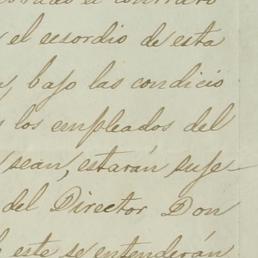 el contrato
y el exordio de esta
bajo las condicio
los empleados del
sean, estarán suje-
del Director Don
este se entenderán